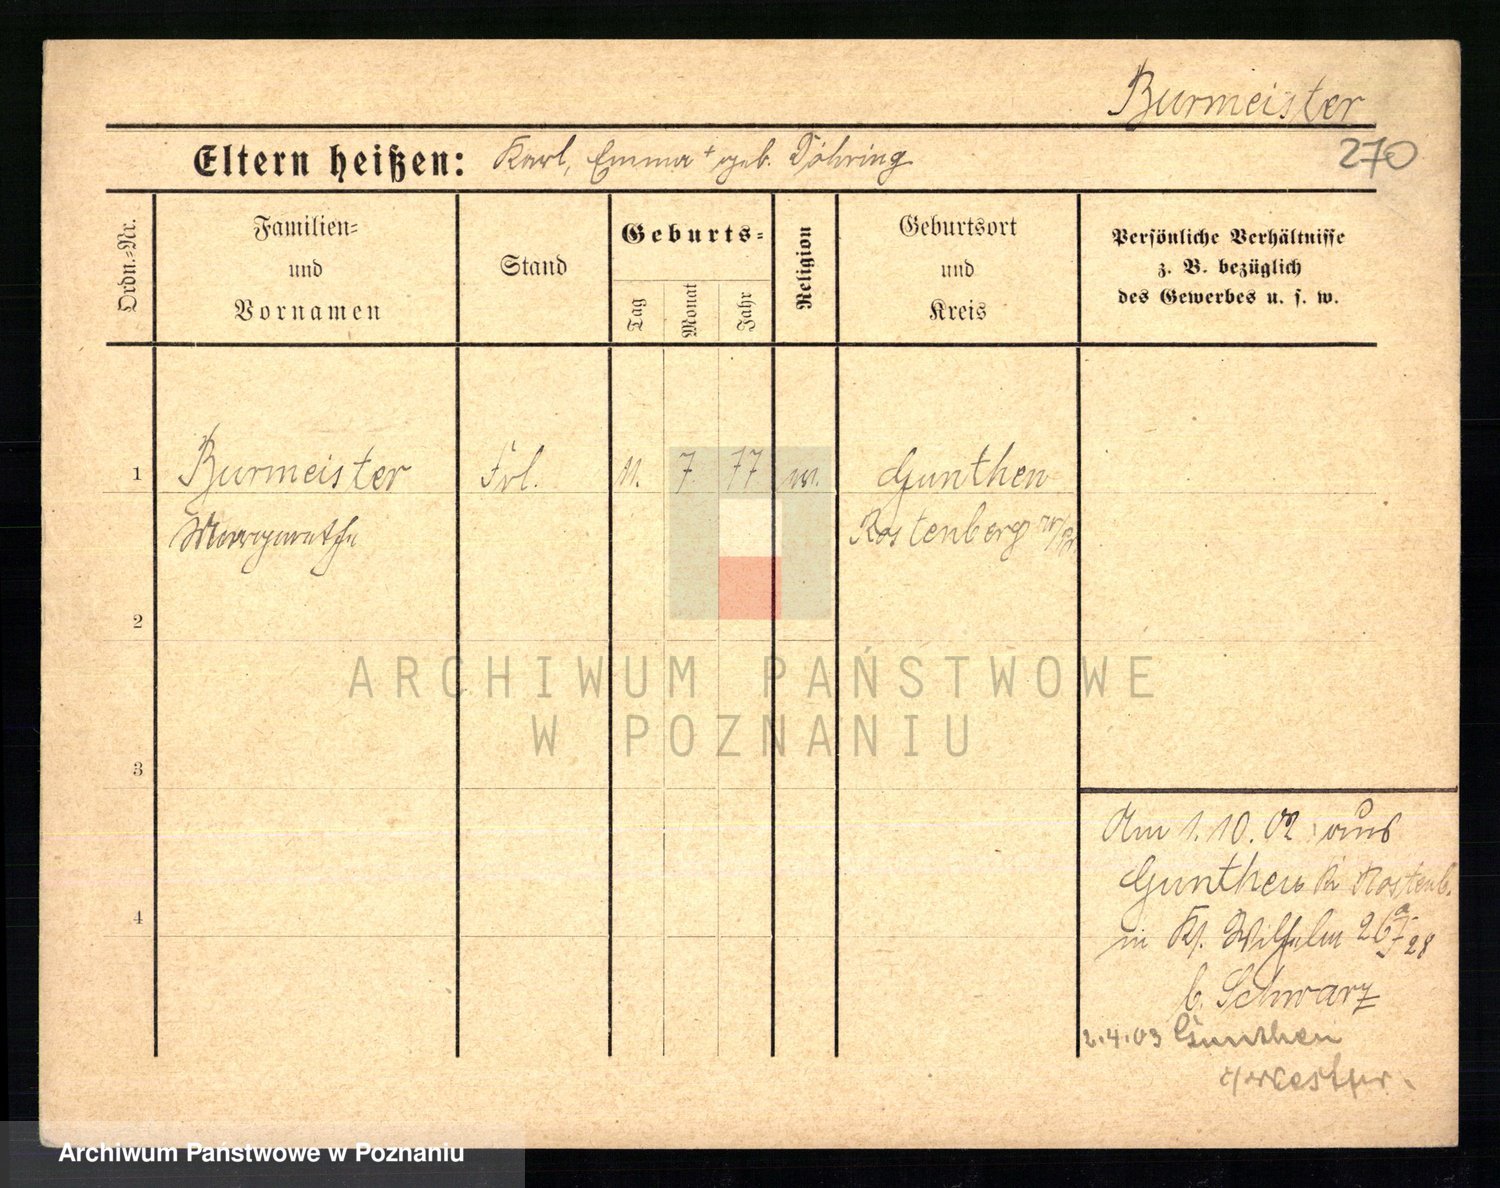 Burmeister
270
Eltern heißen: Karl, Emma + geb. Döhring
Ordn.-Nr.
Familien-
und
Vornamen
Stand
Geburts-
Tag
Monat
Jahr
Religion
Geburtsort
und
Kreis
Persönliche Verhältnisse
z. B. bezüglich
des Gewerbes u. s. w.
1 Burmeister Frl. 11. 7. 77 Gunthen
Margarethe Rostenberg
2
3
4
Am 1.10.02 aus
Gunthen Rostenb.
in Kg. Wilhelm 26
b. Schwarz
2.4.03 Gunthen
ARCHIWUM PAŃSTWOWE
W POZNANIU
Archiwum Państwowe w Poznaniu